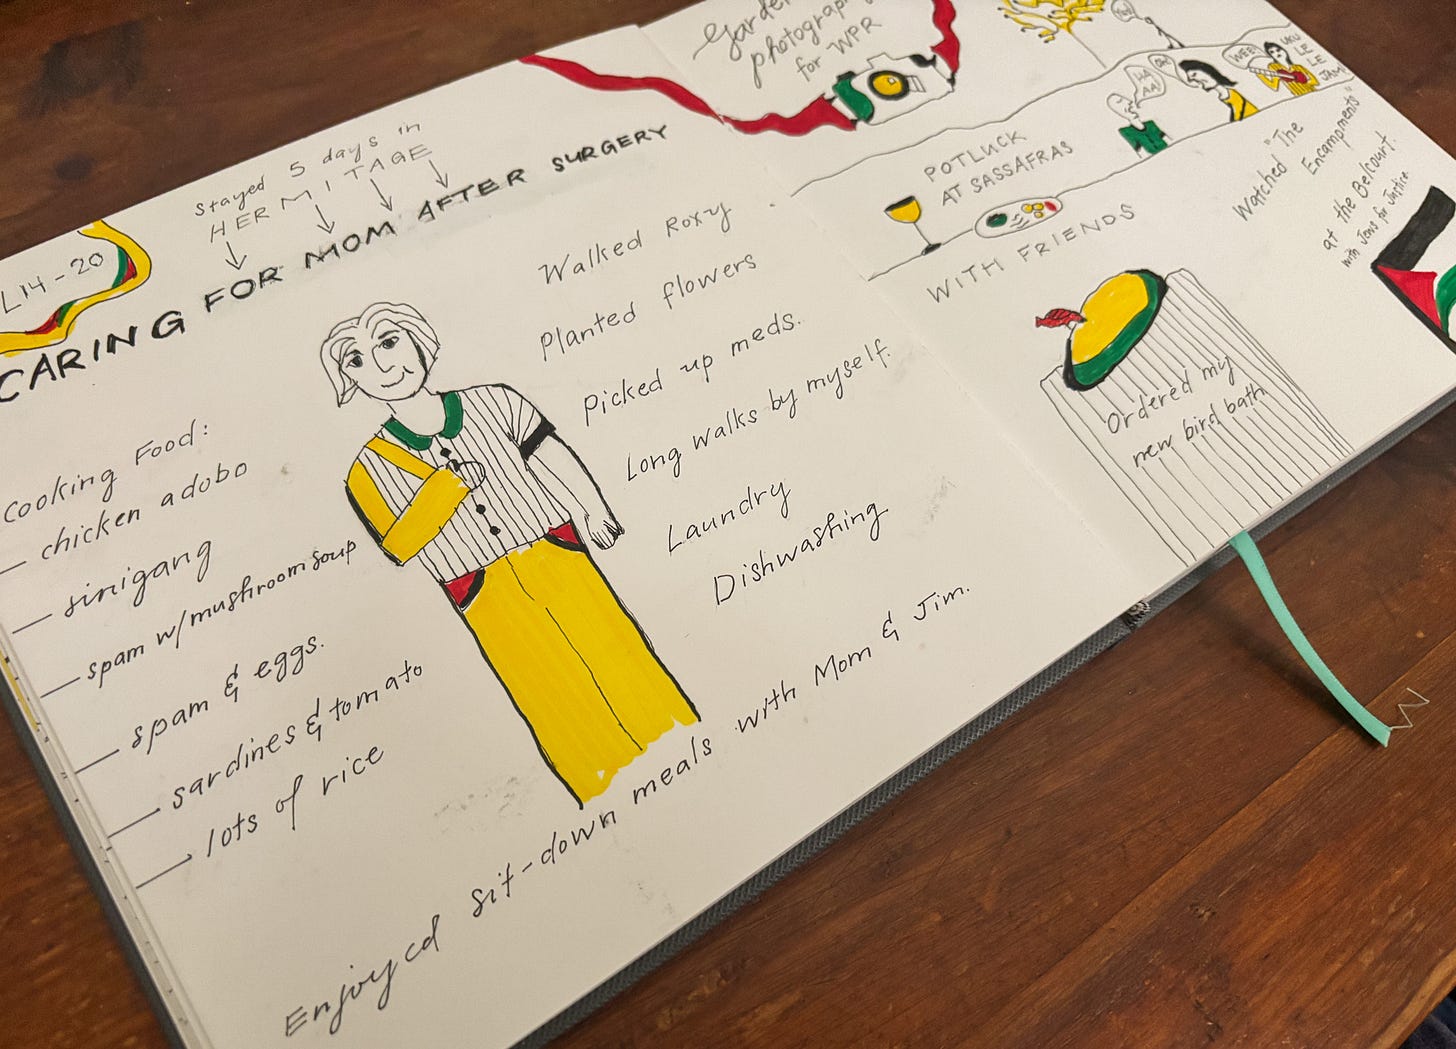 L14-20
Stayed 5 days in
HERMITAGE
CARING FOR MOM AFTER SURGERY
Cooking Food:
— chicken adobo
— sinigang
— spam w/mushroom soup
— spam & eggs.
— sardines & tomato
— lots of rice
Walked Roxy
Planted flowers
picked up meds.
Long walks by myself.
Laundry
Dishwashing
Enjoyed sit-down meals with Mom & Jim.
photograph
for WPR
POTLUCK
AT SASSAFRAS
WITH FRIENDS
HA
HA!
WEE!
UKU
LE
LE
JAM
Watched "The
Encampments"
at the Belcourt.
with Jews for Justice
Ordered my
new bird bath.